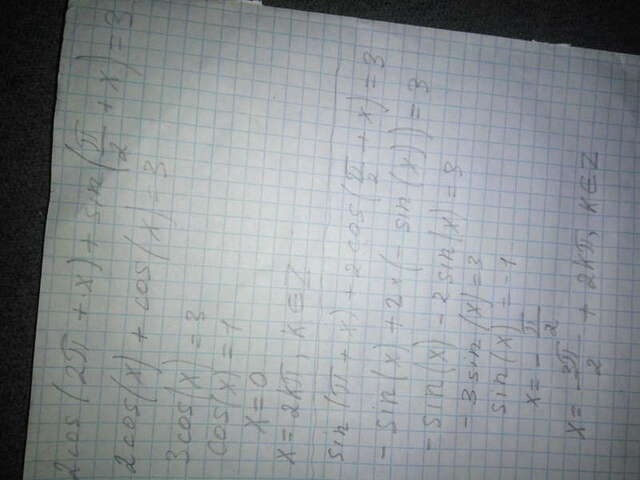 2cos(2π + x) + sin(π/2 + x) = 3
2cos(x) + cos(x) = 3
3cos(x) = 3
cos(x) = 1
x = 0
x = 2kπ, k ∈ Z
sin(π + x) + 2cos(π/2 + x) = 3
- sin(x) + 2 · (- sin(x)) = 3
- sin(x) - 2sin(x) = 3
- 3sin(x) = 3
sin(x) = -1
x = - π/2
x = - π/2 + 2kπ, k ∈ Z